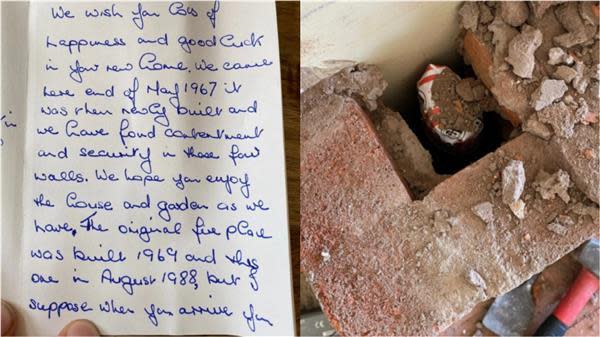 We wish you lots of
happiness and good luck
in your new home. We came
here end of May 1967 it
was then newly built and
we have fond contentment
and security in these four
walls. We hope you enjoy
the house and garden as we
have. The original fire place
was built 1969 and this
one in August 1988, but I
suppose when you arrive you